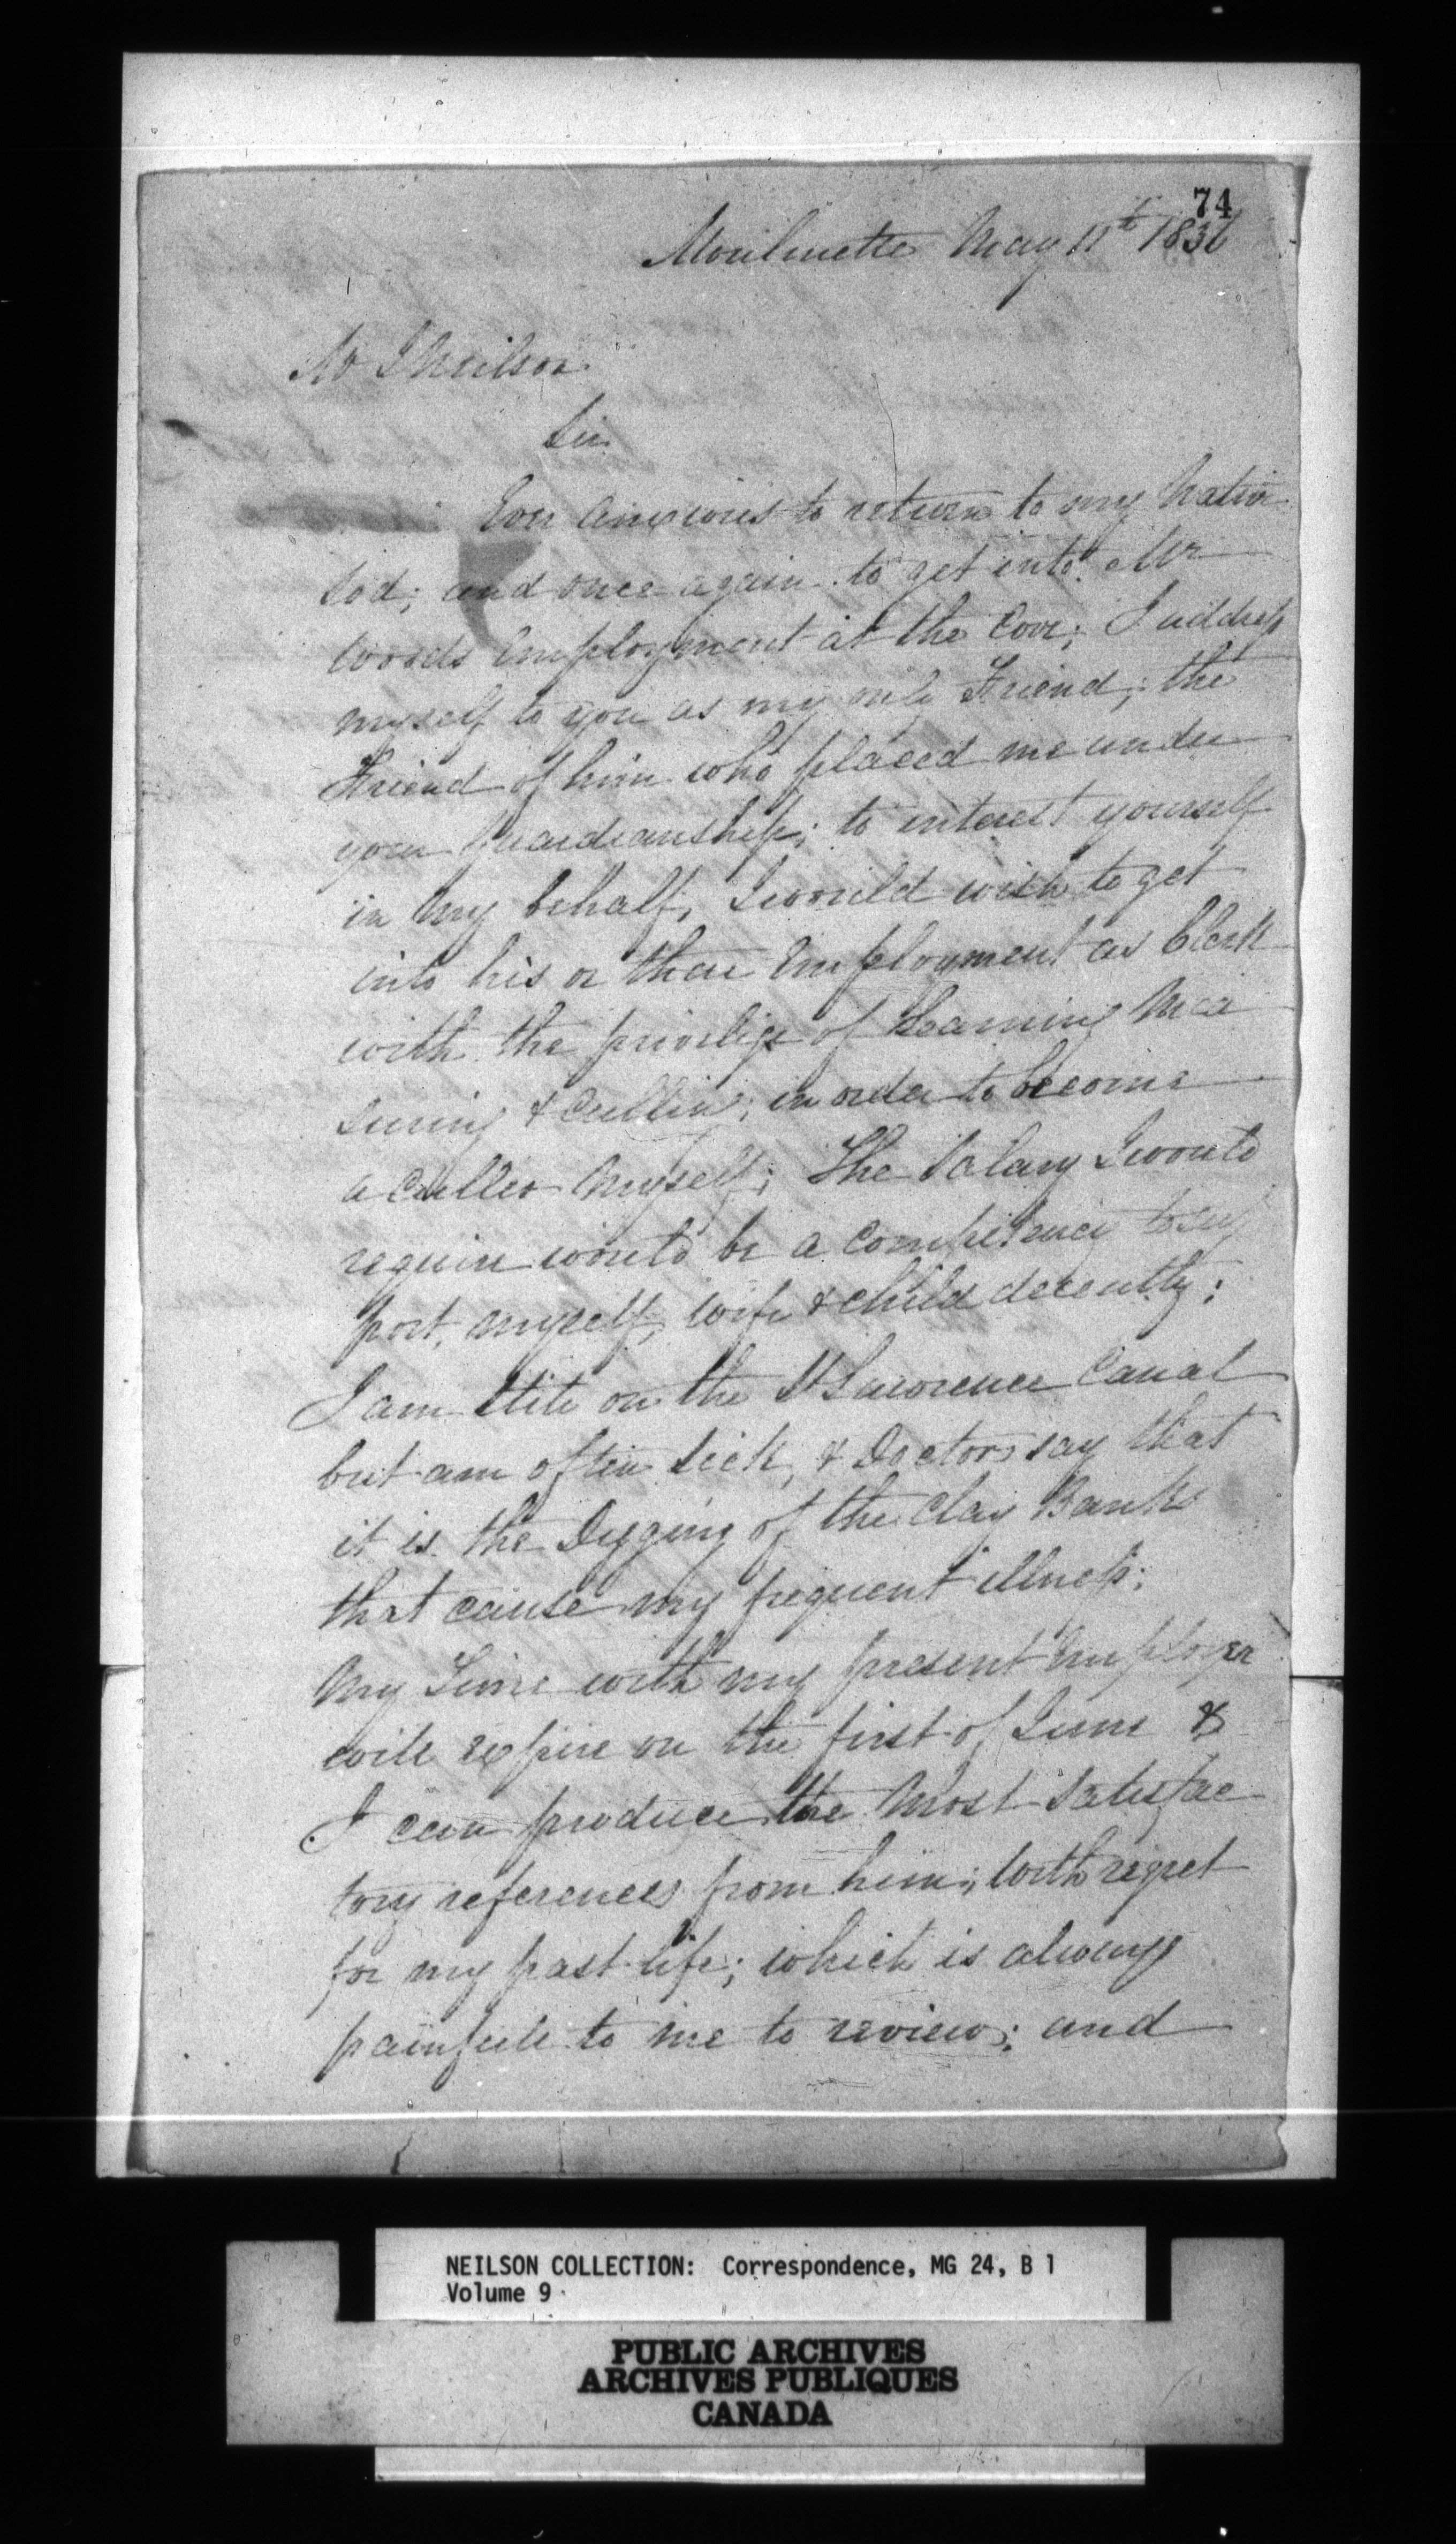 74
Moulinette May 11th 1836
Mr J Neilson
Sir
Ever anxious to return to my Native
Sod; and once again to get into Mr
Woods Employment at the Cove; I address
myself to you as my only Friend; the
Friend of him who placed me under
your guardianship; to interest yourself
in my behalf, I would wish to get
into his or their Employment as Clerk
with the privilige of Learning Mea
suring & Cullin; in order to become
a Culler Myself; The Salary I would
require would be a Compitency to sup
port, myself, wife & child decently;
I am Still on the St Lawrence Canal
but am often sick, & Doctors say that
it is the Digging of the Clay Banks
that cause my frequent illness;
My Time with my present Employer
will expire on the first of June &
I can produce the Most Satisfac
tory references from him; With regret
for my past life; which is always
painfull to me to review; and
NEILSON COLLECTION: Correspondence, MG 24, B 1
Volume 9
PUBLIC ARCHIVES
ARCHIVES PUBLIQUES
CANADA